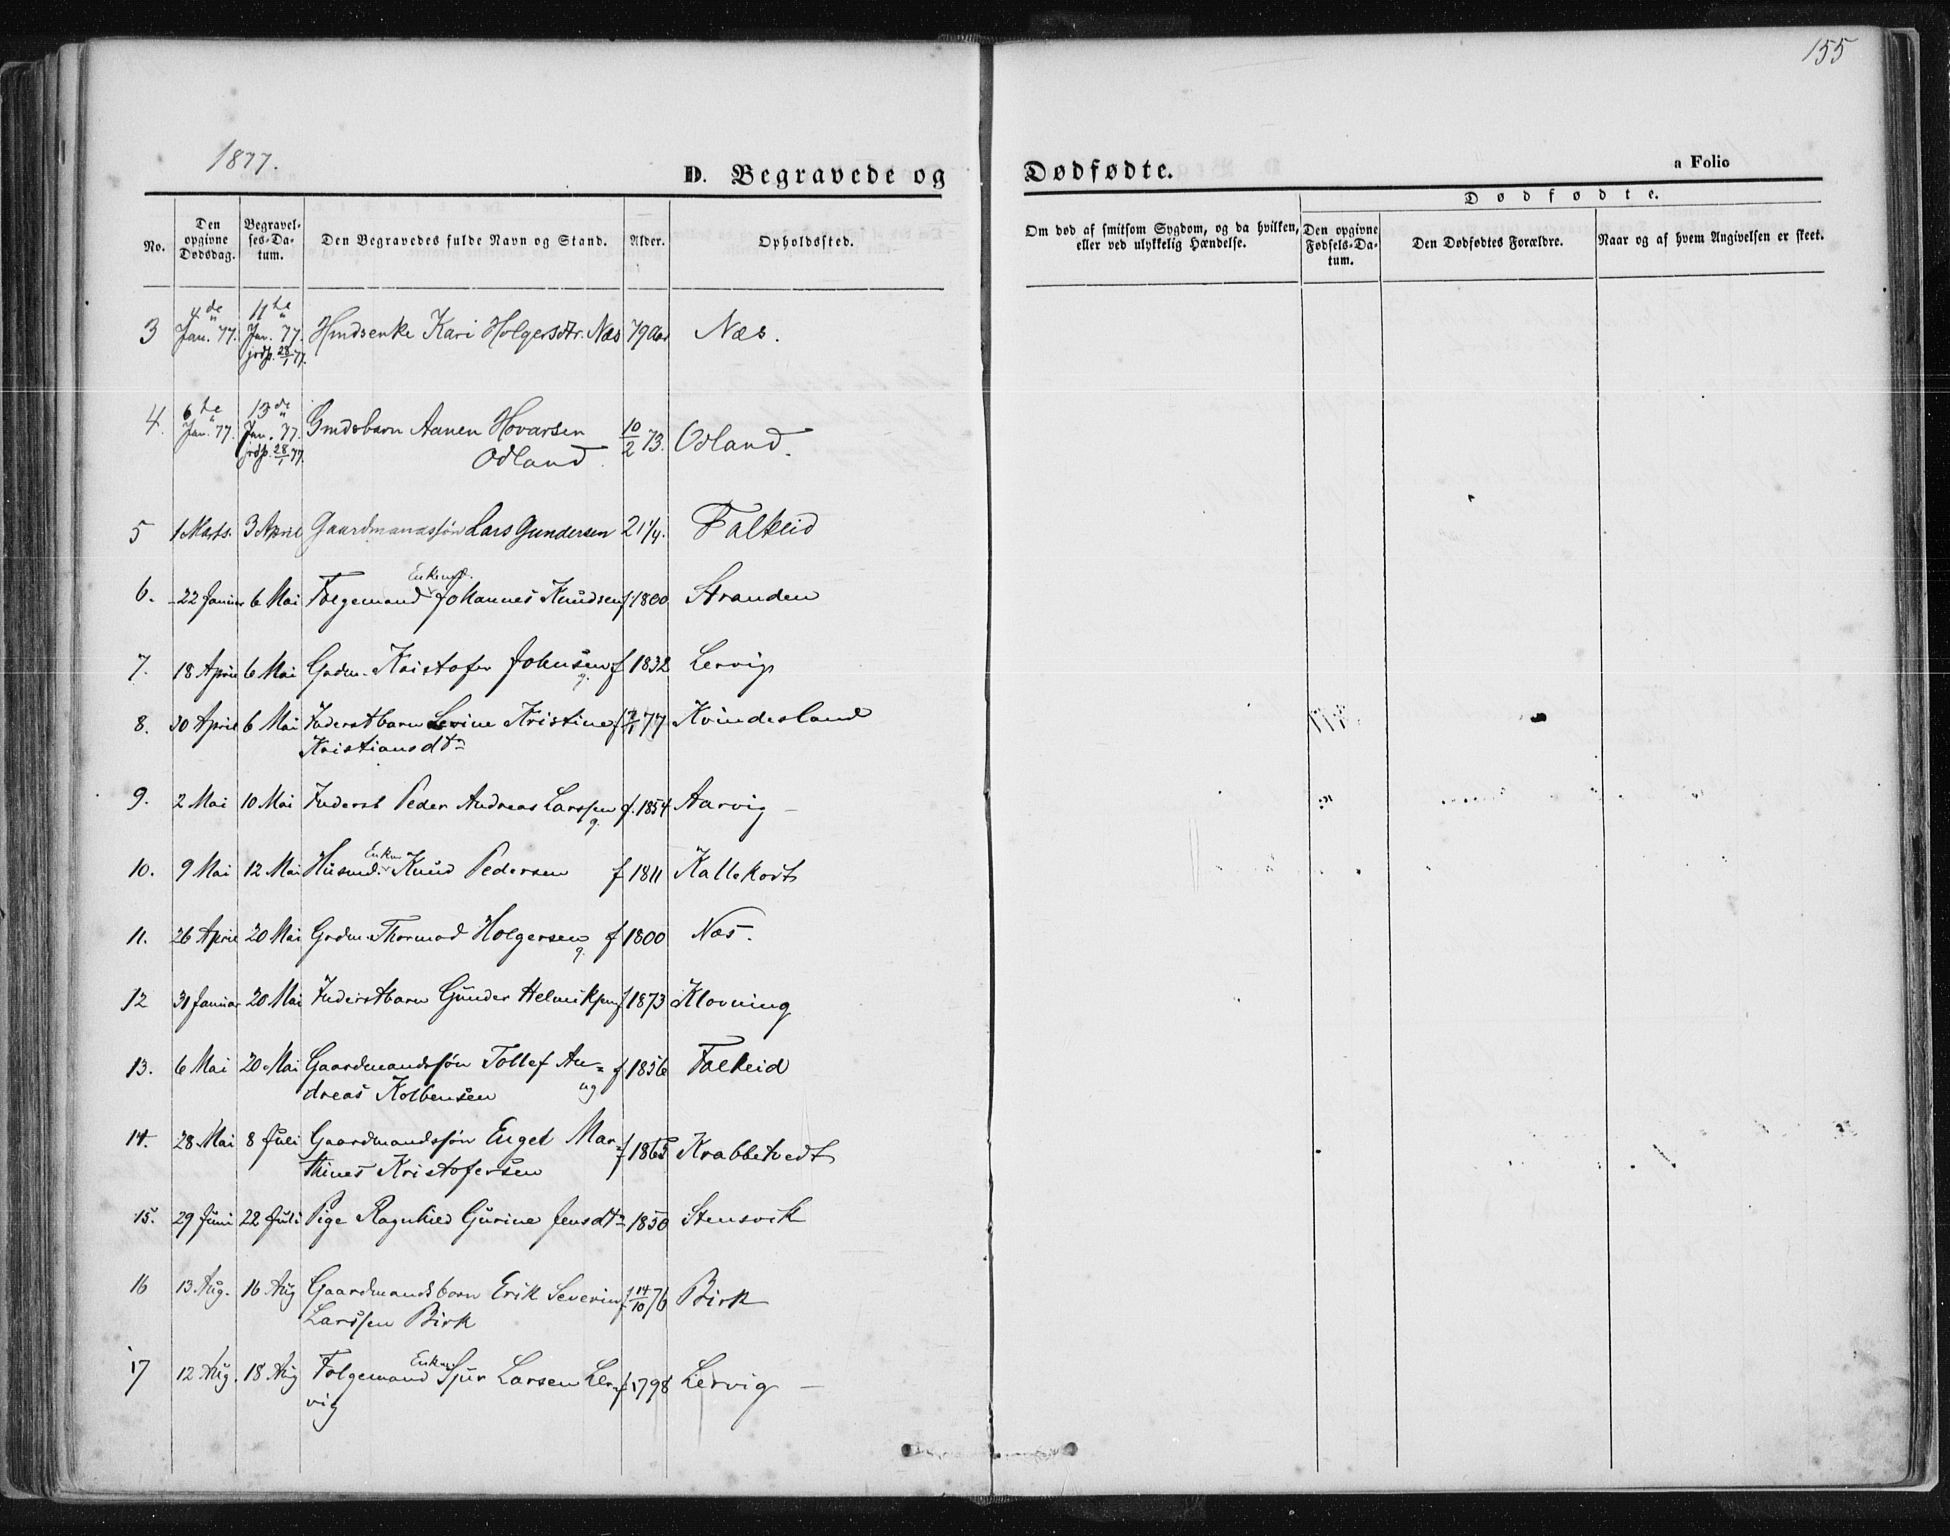 155
1877.
D. Begravede og Dødfødte.
a Folio
No.
Den opgivne Dødsdag.
Begravelses-Datum.
Den Begravedes fulde Navn og Stand.
Alder.
Opholdssted.
Om død af smitsom Sygdom, og da hvilken, eller ved ulykkelig Hændelse.
Dødfødte.
Den opgivne Fødsels-Datum.
Den Dødfødtes Forældre.
Naar og af hvem Angivelsen er skeet.
3 4de Jan. 77. 11te Jan. 77. jrdp. 28/1 77. Hmdsenke Kari Holgersdtr. Næs 79 Aar Næs.
4. 6te Jan. 77. 13de Jan. 77. jrdp. 28/1 77. Gmdsbarn Aanen Hovarsen 10/2 73. Odland.
Odland.
5 1 Marts. 3 April Gaardmandssøn Lars Gundersen 21 1/4. Falkeid
6. 22 Januar 6 Mai Folgemand Enkemd. Johannes Knudsen f. 1800 Stranden
7. 18 April 6 Mai Grdm. Kristofer Johnsen g. f 1832 Lervig
8. 30 April 6 Mai Inderstbarn Lovine Kristine f 77 Kvindesland
Kristiansdtr
9. 2 Mai 10 Mai Inderst Peder Andreas Larssen g. f. 1854 Aarvig —
10. 9 Mai 12 Mai Husmd. Enkem Knud Pedersen f 1811 Kallekodt
11. 26 April 20 Mai Grdm. Thormod Holgersen g. f 1800 Næs.
12 31 Januar 20 Mai Inderstbarn Gunder Helmiksen f 1873 Klovning
13. 6 Mai 20 Mai Gaardmandssøn Tollef An= f 1856 Falkeid
dreas Kolbensen ug
14. 28 Mai 8 Juli Gaardmandssøn Enget Mar= f 1865 Krabbetvedt
thines Kristofersen
15. 29 Juni 22 Juli Pige Ragnhild Gurine Jensdtr 1850 Stensvik
16 13 Aug. 16 Aug Gaardmandsbarn Erik Severin f 14/10 76 Birk
Larssen Birk
17 12 Aug. 18 Aug Folgemand Enkem Sjur Larsen Ler= f 1798 Lervig —
vig